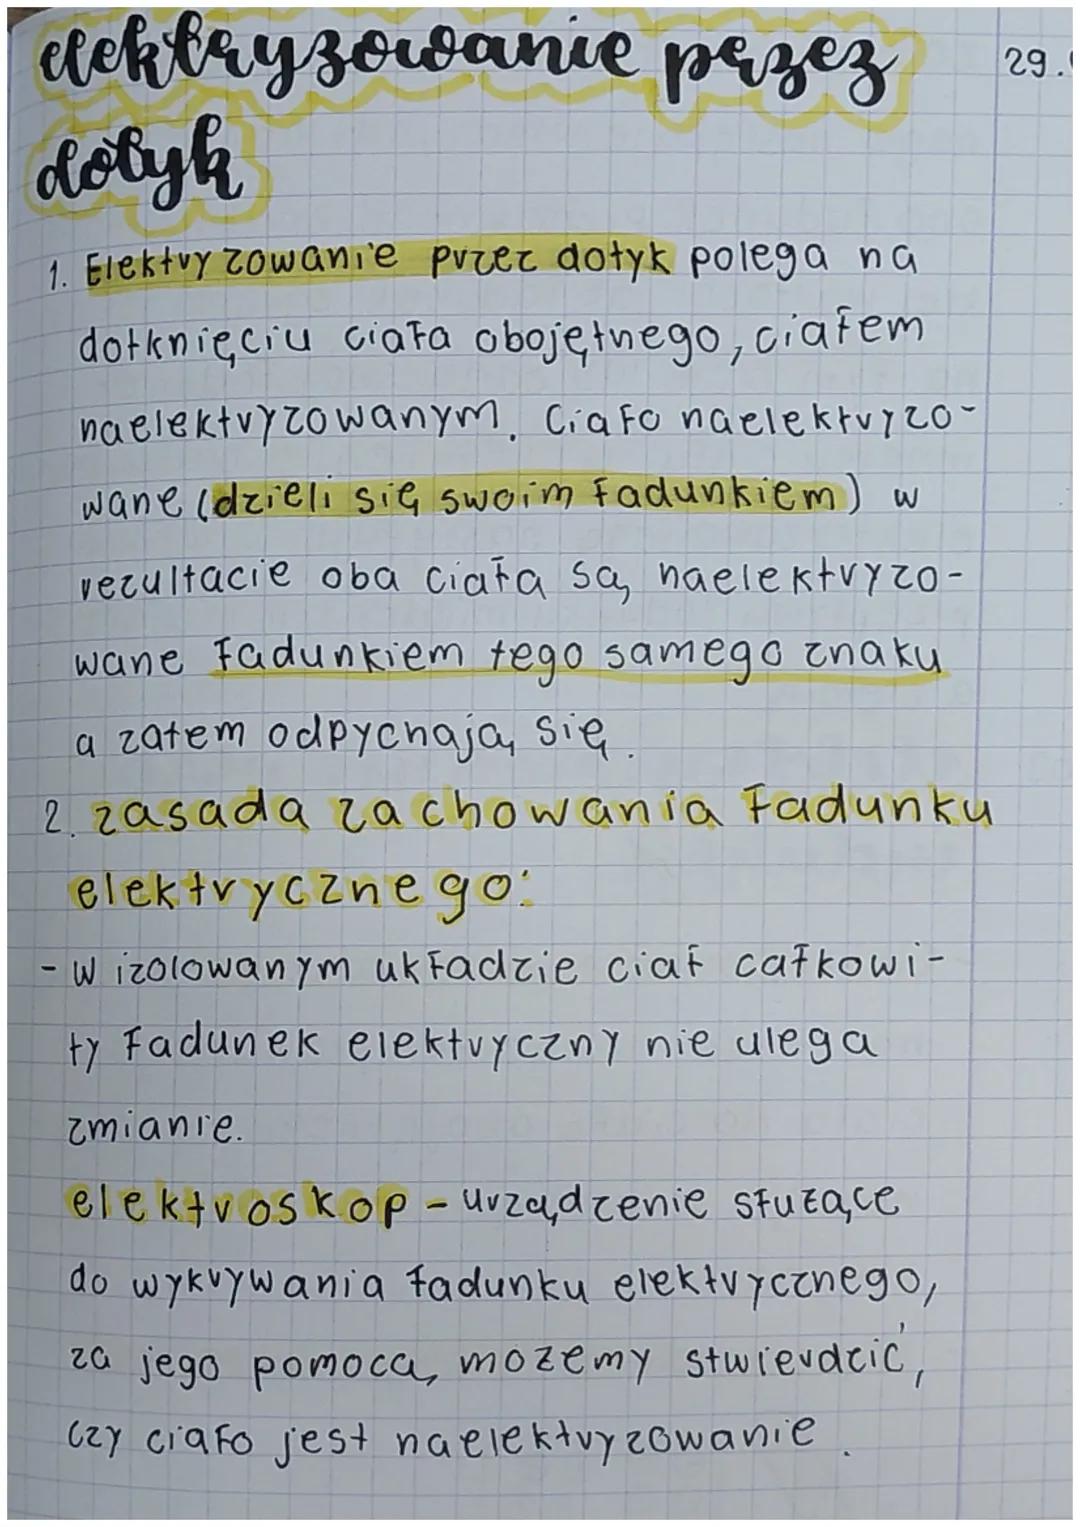 elektryzowanie przez
29.
dotyk
1. Elektryzowanie przez dotyk polega na
dotknięciu ciała obojętnego, ciałem
naelektryzowanym. Ciało naelektryzo-
wane (dzieli się swoim ładunkiem) w
rezultacie oba ciała są naelektryzo-
wane ładunkiem tego samego znaku
a zatem odpychają się.
2. zasada zachowania ładunku
elektrycznego:
- w izolowanym układzie ciał całkowi-
ty ładunek elektryczny nie ulega
zmianie.
elektroskop - urządzenie służące
do wykrywania ładunku elektrycznego,
za jego pomocą możemy stwierdzić,
czy ciało jest naelektryzowanie.